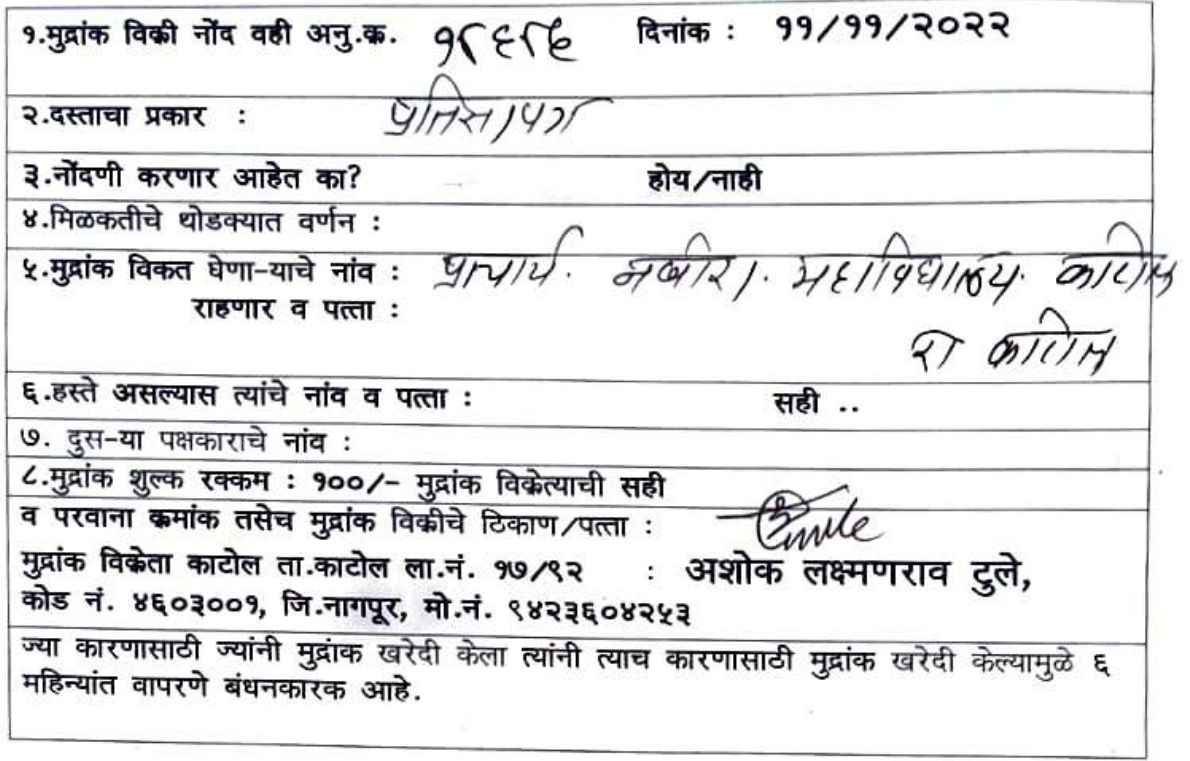 १.मुद्रांक विकी नोंद वही अनु.क. दिनांक : ११/११/२०२२
२.दस्ताचा प्रकार : प्रतिज्ञापत्र
३.नोंदणी करणार आहेत का? होय/नाही
४.मिळकतीचे थोडक्यात वर्णन :
५.मुद्रांक विकत घेणा-याचे नांव : प्राचार्य. नबीरा. महाविद्यालय. काटोल
राहणार व पत्ता : रा काटोल
६.हस्ते असल्यास त्यांचे नांव व पत्ता : सही ..
७. दुस-या पक्षकाराचे नांव :
८.मुद्रांक शुल्क रक्कम : १००/- मुद्रांक विकेत्याची सही
व परवाना कमांक तसेच मुद्रांक विकीचे ठिकाण/पत्ता :
मुद्रांक विकेता काटोल ता.काटोल ला.नं. १७/९२ : अशोक लक्ष्मणराव टुले,
कोड नं. ४६०३००१, जि.नागपूर, मो.नं. ९४२३६०४२५३
ज्या कारणासाठी ज्यांनी मुद्रांक खरेदी केला त्यांनी त्याच कारणासाठी मुद्रांक खरेदी केल्यामुळे ६
महिन्यांत वापरणे बंधनकारक आहे.